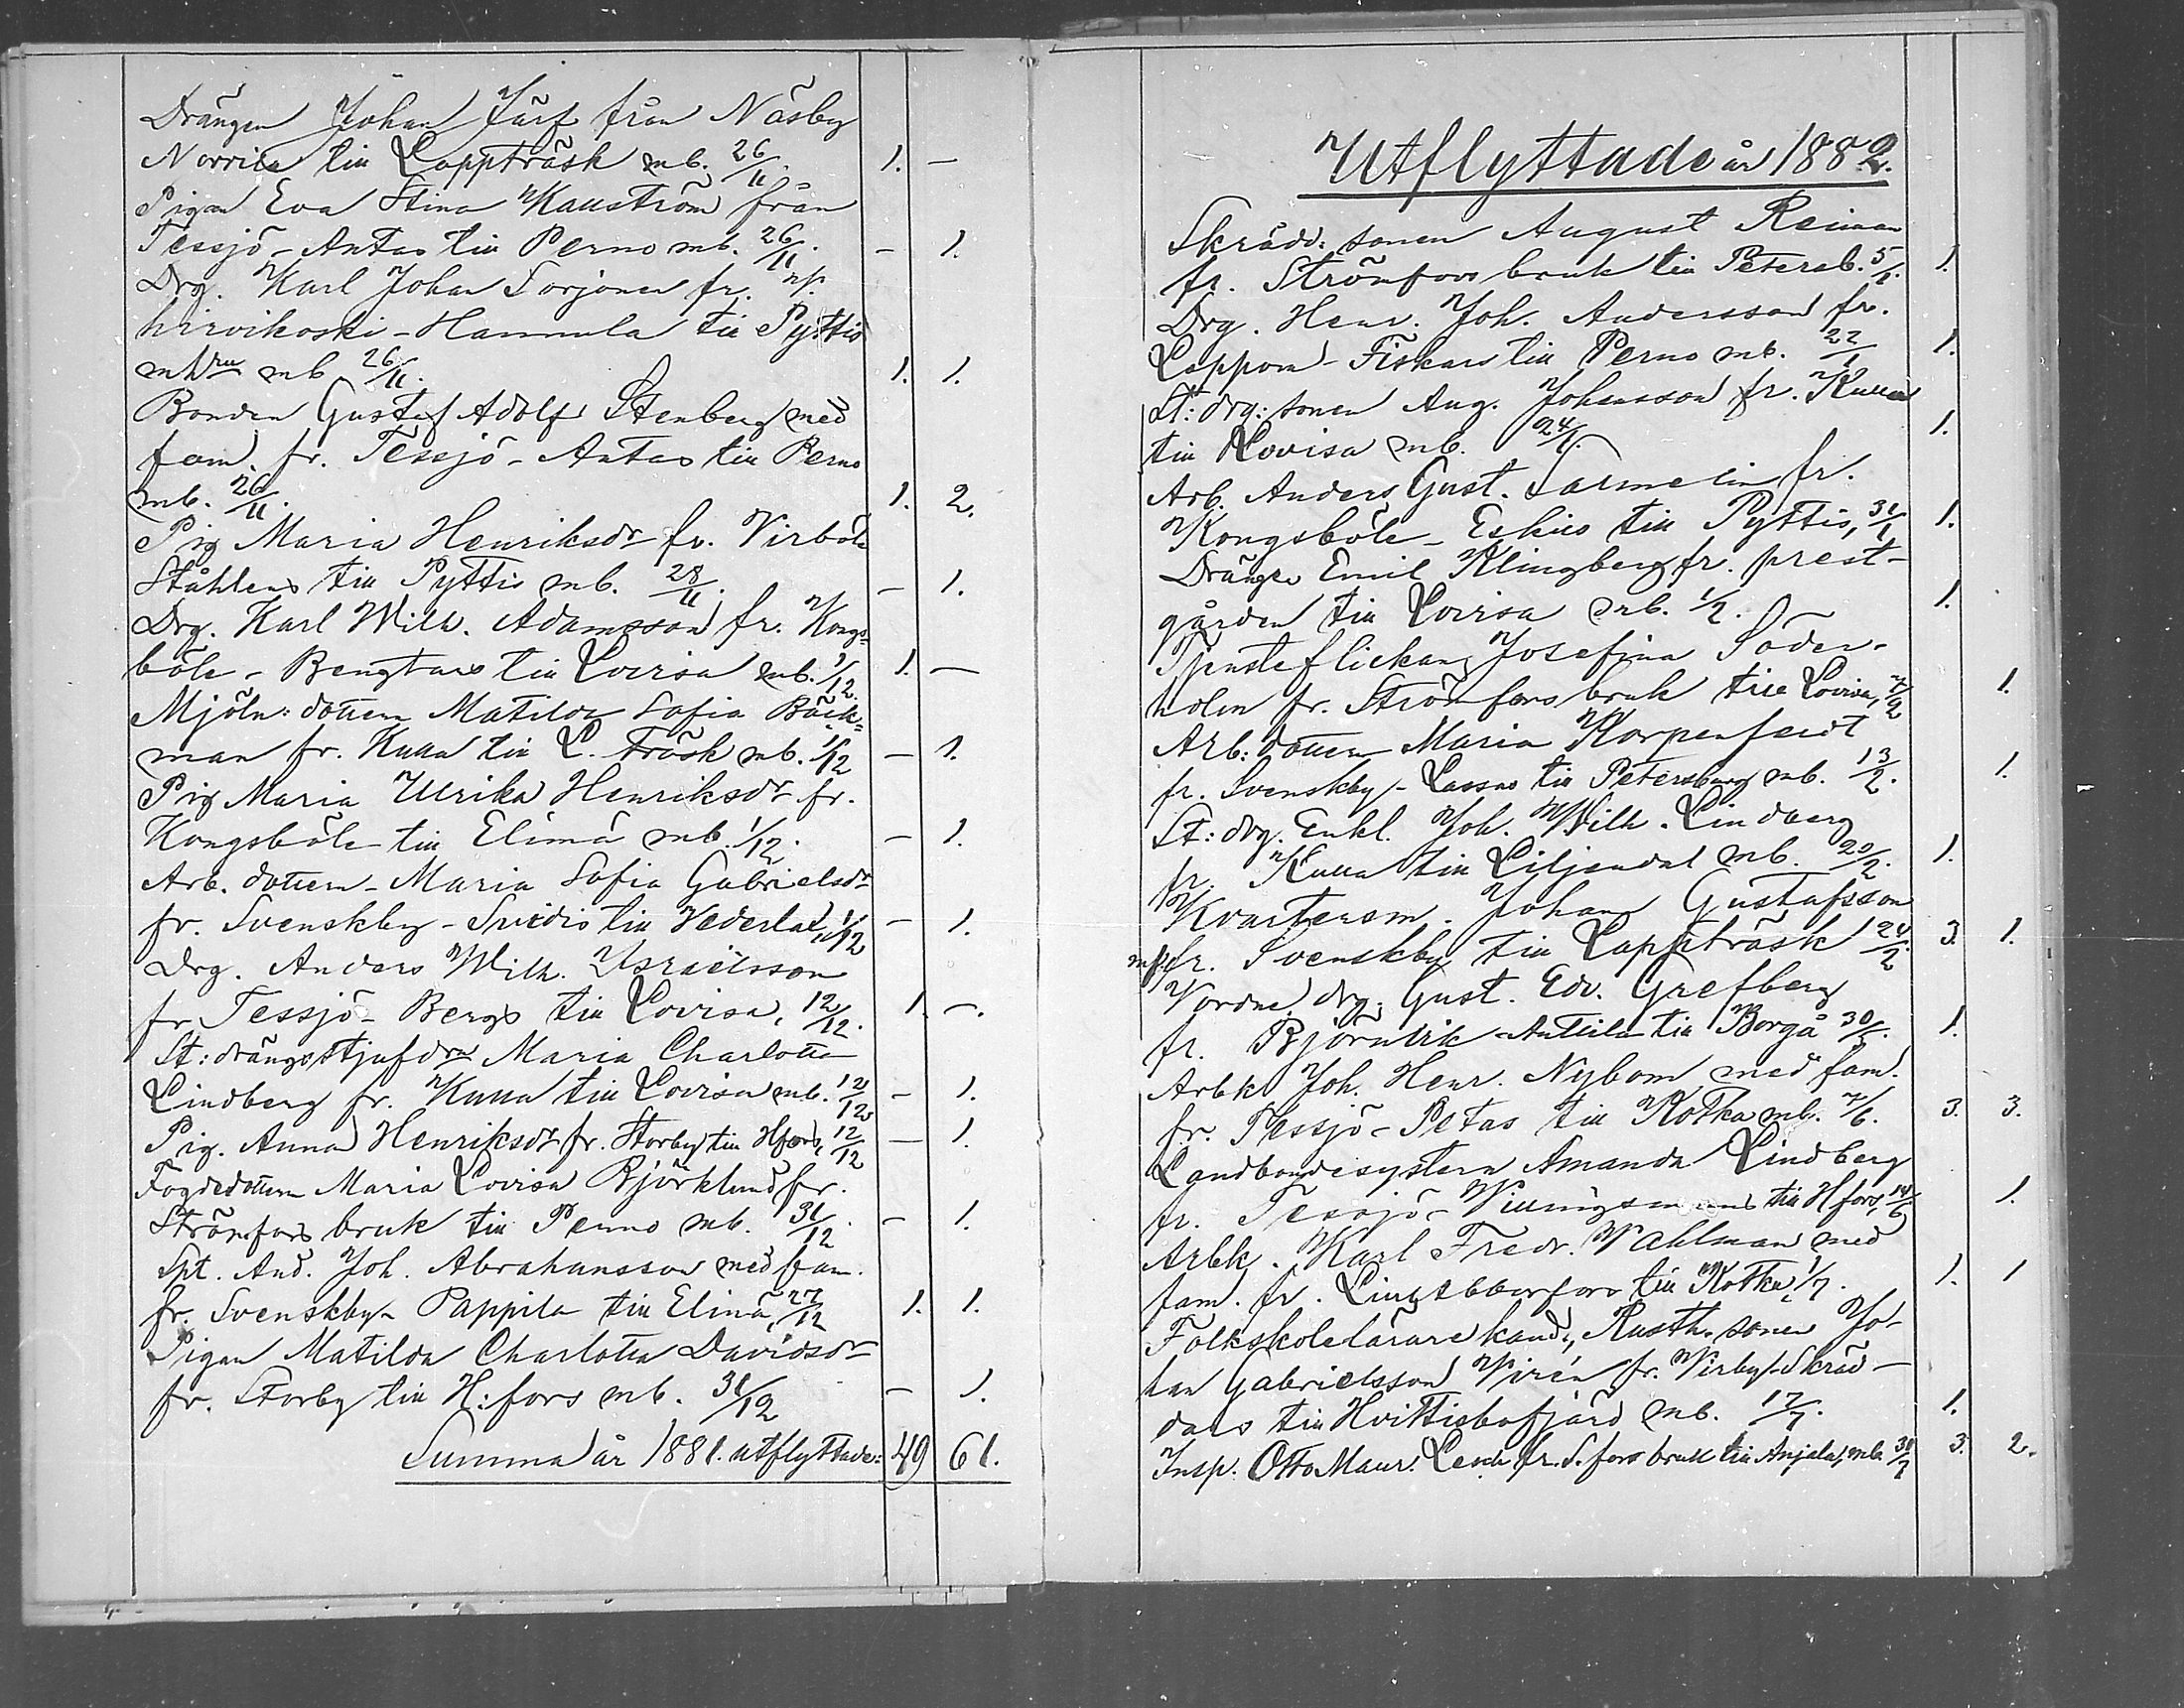 Drängen Johan Järf från Näsby
Norrila till Lappträsk mb. 26/11. 1. —
Pigan Eva Stina Kauström från
Tessjö - Antas till Perno mb. 26/11. — 1.
Drg. Karl Johan Sorjonen fr.
hirvikoski - Hammula till Pyttis
m hru mb 26/11. 1. 1.
Bonden Gustaf Adolf Stenberg med
fam. fr. Tessjö - Antas till Perno
mb. 26/11. 1. 2.
Pig Maria Henriksdr fr. Virböle
Ståhlens till Pyttis mb. 28/11. — 1.
Drg. Karl Wilh. Adamsson fr. Kongs-
böle - Bengtars till Lovisa mb. 1/12. 1. —
Mjöln: dottern Matilda Sofia Bäck-
man fr. Kulla till L. träsk mb. 1/12 — 1.
Pig Maria Ulrika Henriksdr fr.
Kongsböle till Elimä mb. 1/12. — 1.
Arb. dottern Maria Sofia Gabrielsdr
fr. Svenskby - Smedis till Vederlax, 1/12 — 1.
Drg. Anders Wilh. Israelsson
fr Tessjö - Bergs till Lovisa, 12/12. 1. —.
St: drängsstjufdrn Maria Charlotta
Lindberg fr. Kulla till Lovisa mb. 12/12 — 1.
Pig. Anna Henriksdr fr. Storby till Hfors, 12/12 — 1.
Fogdedottern Maria Lovisa Björklund fr.
Strömfors bruk till Perno mb. 31/12. — 1.
Spt. And. Joh. Abrahamsson med fam.
fr. Svenskby - Pappila till Elimä, 27/12 1. 1.
Pigan Matilda Charlotta Davidsdr
fr. Storby till H:fors mb. 31/12 — 1.
Summa år 1881. utflyttade: 49 61.
Utflyttade år 1882.
Skrädd: sonen August Reiman
fr. Strömfors bruk till Petersb. 5/1. 1.
Drg. Henr. Joh. Andersson fr.
Loppom - Fiskars till Perno mb. 22/1 1.
St: drg: sonen Aug. Johansson fr. Kulla
till Lovisa mb. 24/1. 1.
Arb. Anders Gust. Sarmelin fr.
Kongsböle - Eskils till Pyttis, 31/1 1.
Drängen Emil Klingberg fr. prest-
gården till Lovisa mb. 1/2. 1.
Tjensteflickan Josefina Söder-
holm fr. Strömfors bruk till Lovisa, 7/2 1.
Arb: dottern Maria Korpenfeldt
fr. Svenskby - Lassas till Petersburg mb. 13/2. 1.
St: drg. Enkl. Joh. Wilh. Lindberg
fr. Kulla till Liljendal mb. 20/2. 1.
Kvartersm. Johan Gustafsson
fr. Svenskby till Lappträsk 24/2 3. 1.
Vordne drg. Gust. Edv. Grefberg
fr. Björnvik - Anttila till Borgå 1.
Arbk Joh. Henr. Nybom med fam.
fr. Tessjö - Petas till Kotka mb. 7/6. 3. 3.
Landbondesystern Amanda Lindberg
fr. Tessjö - till Hfors, 14/6 1.
Arbk. Karl Fredr. Wahlman med
fam. fr. till Kotka 1/7. 1. 1
Folkskolelärare kand., Rusth. sonen Jo-
han Gabrielsson Virén fr. Virby - Skräd-
dars till Hvittisbofjärd mb. 17/7. 1.
Insp. Otto Maur. fr. S. fors bruk till Anjala, mb. 31/7 3. 2.